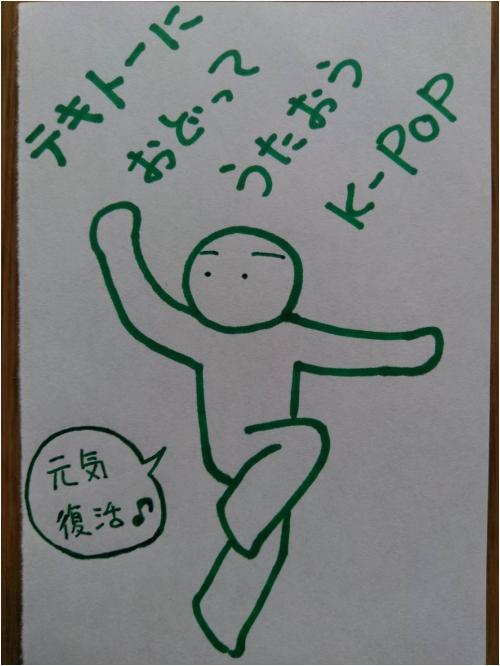 テキトーに
おどって
うたおう
K-POP
元気
復活♪